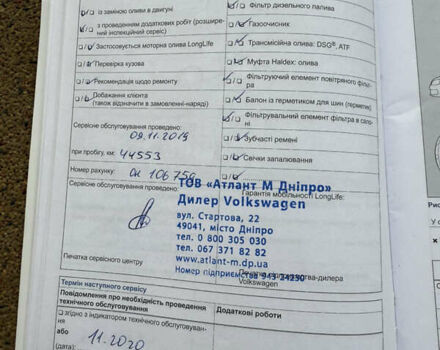 із заміною оливи в двигуні
з проведенням додаткових робіт (розширений інспекційний сервіс)
Застосовується моторна олива LongLife
Перевірка кузова
Рекомендація щодо ремонту
Побажання клієнта
(також відзначити в замовленні-наряді)
Фільтр дизельного палива
Газоочисник
Трансмісійна олива: DSG®, ATF
Муфта Haldex: олива
Фільтруючий елемент повітряного фільтра
Балон із герметиком для шин (герметик)
Фільтрувальний елемент фільтра в салоні
Зубчасті ремені
Свічки запалювання
Сервісне обслуговування проведено:
09.11.2019
при пробігу, км: 44553
Номер рахунку: 106750
Сервісне обслуговування проведено:
Гарантія мобільності LongLife:
ТОВ «Атлант М Дніпро»
Дилер Volkswagen
вул. Стартова, 22
49041, місто Дніпро
тел. 0 800 305 030
тел. 067 371 82 82
www.atlant-m.dp.ua
Номер підприємства
Печатка сервісного центру
Volkswagen
Термін наступного сервісу
Повідомлення про необхідність проведення
технічного обслуговування
Додаткові роботи
згідно з індикатором технічного обслуговування
або
(дата): 11.2020